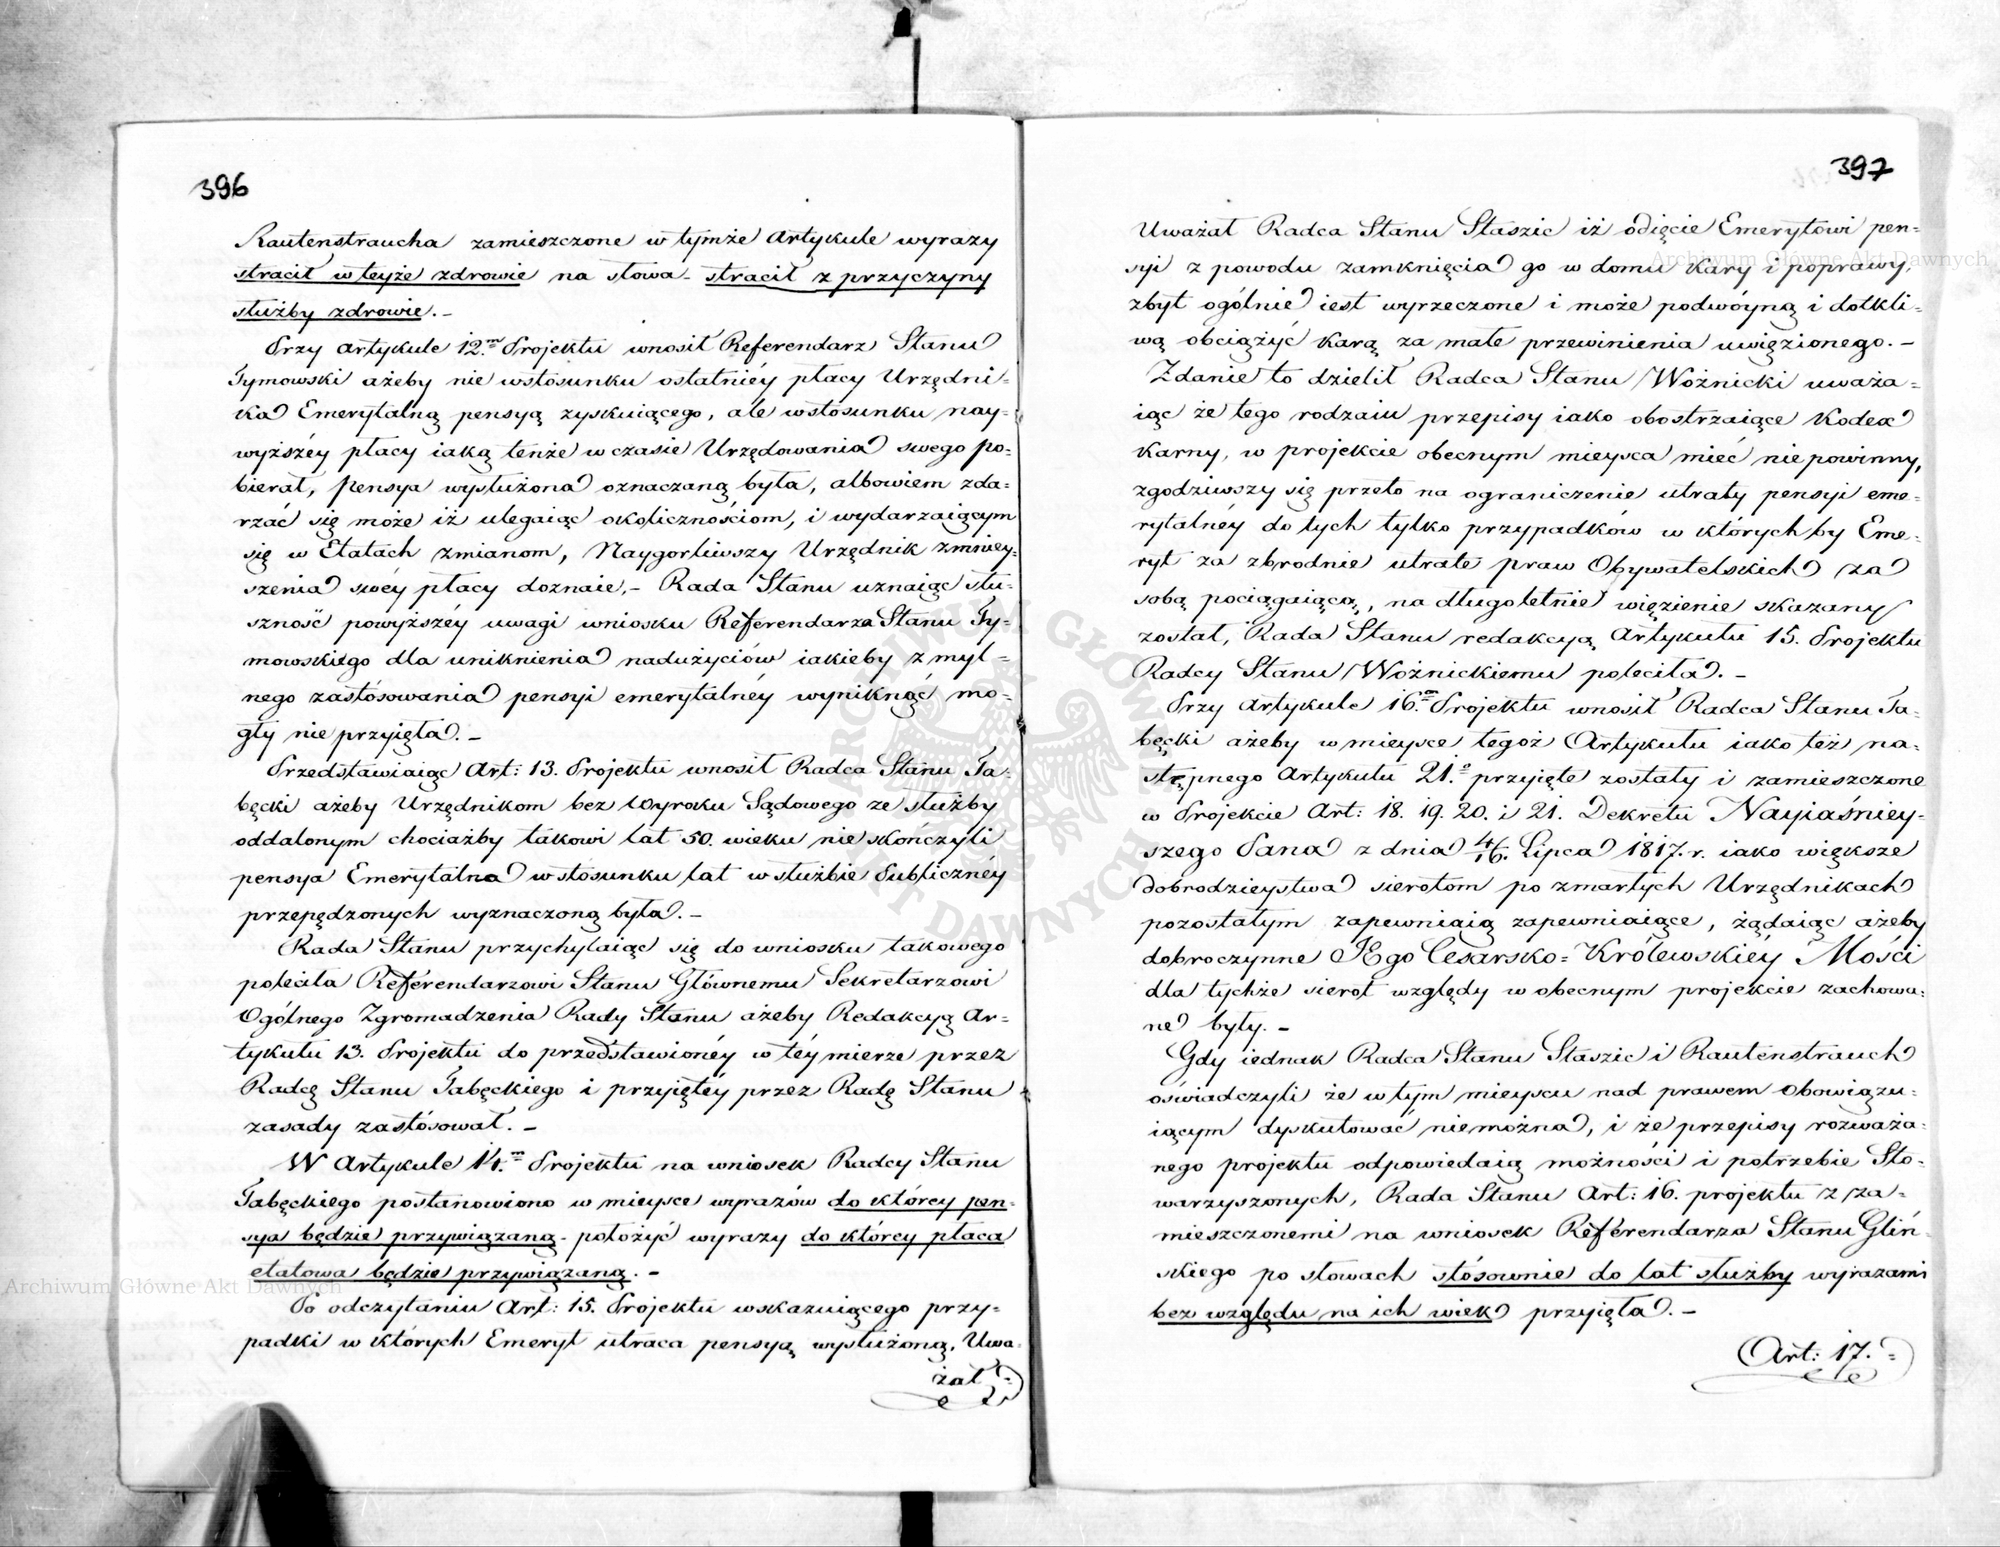 396
Rautenstraucha zamieszczone w tymże Artykule wyrazy
stracił w teyże zdrowie na słowa - stracił z przyczyny
służby zdrowie. -
Przy Artykule 12.m Projektu wnosił Referendarz Stanu
Tymowski ażeby nie w stosunku ostatniéy płacy Urzędni-
ka Emerytalną pensyą zyskuiącego, ale w stosunku nay-
wyższéy płacy iaką tenże w czasie Urzędowania swego po-
bierał, pensya wysłużona oznaczaną była, albowiem zda-
rzać się może iż ulegaiąc okolicznościom, i wydarzaiącym
się w Etatach zmianom, Naygorliwszy Urzędnik zmniey-
szenia swéy płacy doznaie, - Rada Stanu uznaiąc słu-
szność powyższéy uwagi wniosku Referendarza Stanu Ty-
mowskiego dla uniknienia nadużyciów iakieby z myl-
nego zastósowania pensyi emerytalnéy wyniknąć mo-
gły nie przyięła. -
Przedstawiaiąc Art: 13. Projektu wnosił Radca Stanu Ta-
bęcki ażeby Urzędnikom bez Wyroku Sądowego ze służby
oddalonym chociażby takowi lat 50. wieku nie skończyli
pensya Emerytalna w stosunku lat w służbie Publicznéy
przepędzonych wyznaczoną była. -
Rada Stanu przychylaiąc się do wniosku takowego
poleciła Referendarzowi Stanu Głównemu Sekretarzowi
Ogólnego Zgromadzenia Rady Stanu ażeby Redakcyą Ar-
tykułu 13. Projektu do przedstawionéy w téy mierze przez
Radcę Stanu Tabęckiego i przyiętéy przez Radę Stanu
zasady zastósował. -
W Artykule 14.m Projektu na wniosek Radcy Stanu
Tabęckiego postanowiono w mieysce wyrazów do którey pen-
sya będzie przywiązaną - położyć wyrazy do którey płaca
etatowa będzie przywiązaną. -
Po odczytaniu Art: 15. Projektu wskazuiącego przy-
padki w których Emeryt utraca pensyą wysłużoną, Uwa-
żał
397
Uważał Radca Stanu Staszic iż odięcie Emerytowi pen-
syi z powodu zamknięcia go w domu kary i poprawy,
zbyt ogólnie iest wyrzeczone i może podwóyną i dotkli-
wą obciążyć karą za małe przewinienia uwięzionego. -
Zdanie to dzielił Radca Stanu Woźnicki uważa-
iąc że tego rodzaiu przepisy iako obostrzaiące Kodex
Karny, w projekcie obecnym mieysca mieć nie powinny,
zgodziwszy się przeto na ograniczenie utraty pensyi eme-
rytalnéy do tych tylko przypadków w których by Eme-
ryt za zbrodnie utratę praw Obywatelskich za
sobą pociągaiącą, na długoletnie więzienie skazany
został, Rada Stanu redakcyą Artykułu 15. Projektu
Radcy Stanu Woźnickiemu poleciła. -
Przy Artykule 16.m Projektu wnosił Radca Stanu Ta-
bęcki ażeby w mieysce tegoż Artykułu iako też na-
stępnego Artykułu 21.o przyięte zostały i zamieszczone
w Projekcie Art: 18. 19. 20. i 21. Dekretu Nayiaśniey-
szego Pana z dnia 4/16. Lipca 1817. r. iako większe
dobrodzieystwa sierotom po zmarłych Urzędnikach
pozostałym zapewniaią zapewniaiące, żądaiąc ażeby
dobroczynne JEgo Cesarsko-Królewskiéy Mości
dla tychże sierot względy w obecnym projekcie zachowa-
ne były. -
Gdy iednak Radca Stanu Staszic i Rautenstrauch
oświadczyli że w tym mieyscu nad prawem obowiązu-
iącym dyskutować nie można, i że przepisy rozważa-
nego projektu odpowiedaią możności i potrzebie Sto-
warzyszonych, Rada Stanu Art: 16. projektu z za-
mieszczonemi na wniosek Referendarza Stanu Gliń-
skiego po słowach stósownie do lat służby wyrazami
bez względu na ich wiek przyięła. -
Art: 17.
Archiwum Główne Akt Dawnych
Archiwum Główne Akt Dawnych
ARCHIWUM GŁÓWNE AKT DAWNYCH